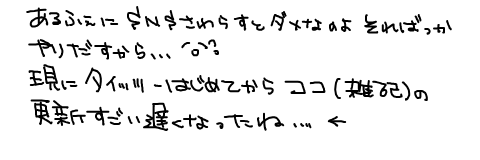 あるふぇに SNSさわらすとダメなのよ そればっか
やりだすから… ''o''?
現に タイッツーはじめてから ココ(雑記)の
更新すごい遅くなったね… ←